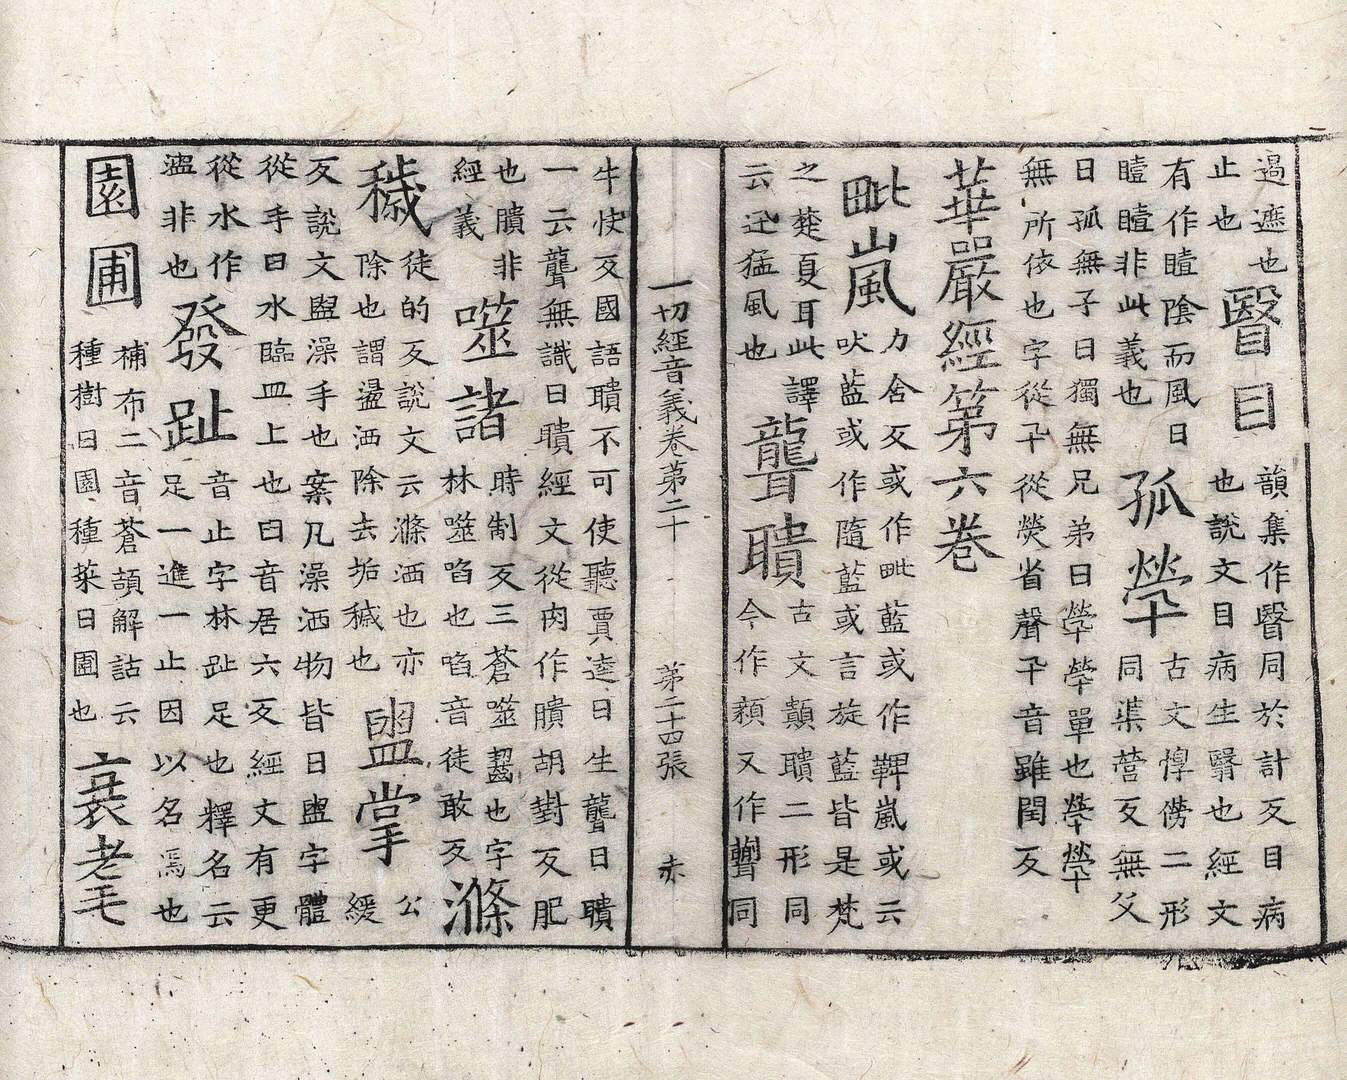 過遮也
止也
瞖目
韻集作瞖同於計反目病
也說文目病生翳也經文
有作曀陰而風曰
曀曀非此義也
孤㷀
古文惸傍二形
同渠營反無父
曰孤無子曰獨無兄弟曰㷀㷀單也㷀㷀
無所依也字從卂從熒省聲卂音雖閏反
華嚴經第六卷
毗嵐
力含反或作毗藍或作鞞嵐或云
吠藍或作隨藍或言旋藍皆是梵
之楚夏耳此譯
云迅猛風也
聾聵
古文顡聵二形同
今作又作同
一切經音義卷第二十 第二十四張 赤
牛快反國語聵不可使聽賈逵曰生聾曰聵
一云聾無識曰聵經文從肉作膭胡對反肥
也膭非
經義
噬諸
時制反三蒼噬齧也字
林噬啗也啗音徒敢反
滌
穢
徒的反說文云滌洒也亦
除也謂盪洒除去垢穢也
盥掌
公
緩
反說文盥澡手也案凡澡洒物皆曰盥字體
從手臼水臨皿上也臼音居六反經文有更
從水作
非也
發趾
音止字林趾足也釋名云
足一進一止因以名焉也
園圃
補布二音蒼頡解詁云
種樹曰園種菜曰圃也
衰老毛